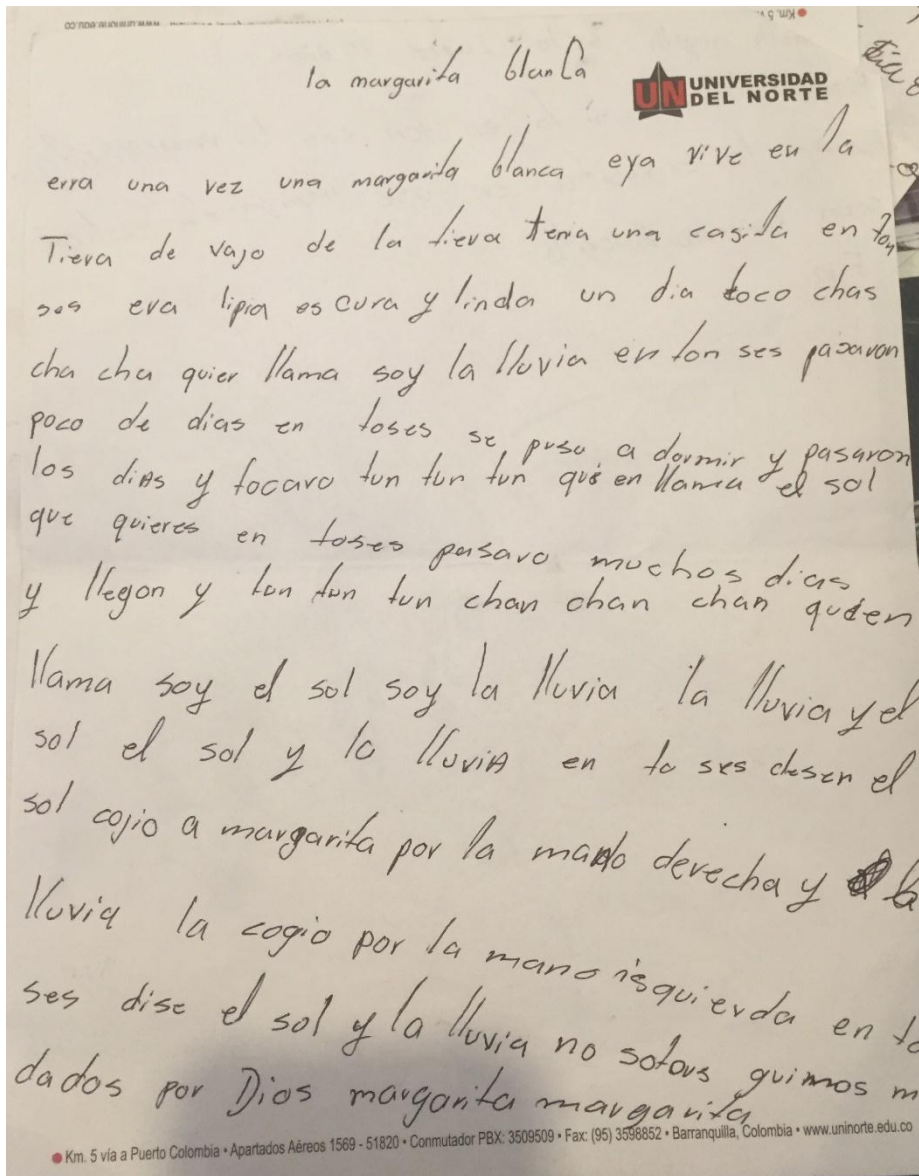 la margarita blanCa
UN UNIVERSIDAD
DEL NORTE
erra una vez una margarita blanca eya vive en la
Tierra de vajo de la tierra tenia una casita en ton
ses era lipia oscura y linda un dia toco chas
cha cha quier llama soy la lluvia en ton ses pasaron
poco de dias en toses se puso a dormir y pasaron
los dias y tocaro tun tun tun quien llama el sol
que quieres en toses pasaro muchos dias
y llegon y tun tun tun chan chan chan quien
llama soy el sol soy la lluvia la lluvia y el
sol el sol y la lluvia en to ses el
sol cojio a margarita por la mando derecha y la
lluvia la cogio por la mano isquierda en to
ses dise el sol y la lluvia no sotovs m
dados por Dios margarita margarita
Km. 5 vía a Puerto Colombia • Apartados Aéreos 1569 - 51820 • Conmutador PBX: 3509509 • Fax: (95) 3598852 • Barranquilla, Colombia • www.uninorte.edu.co